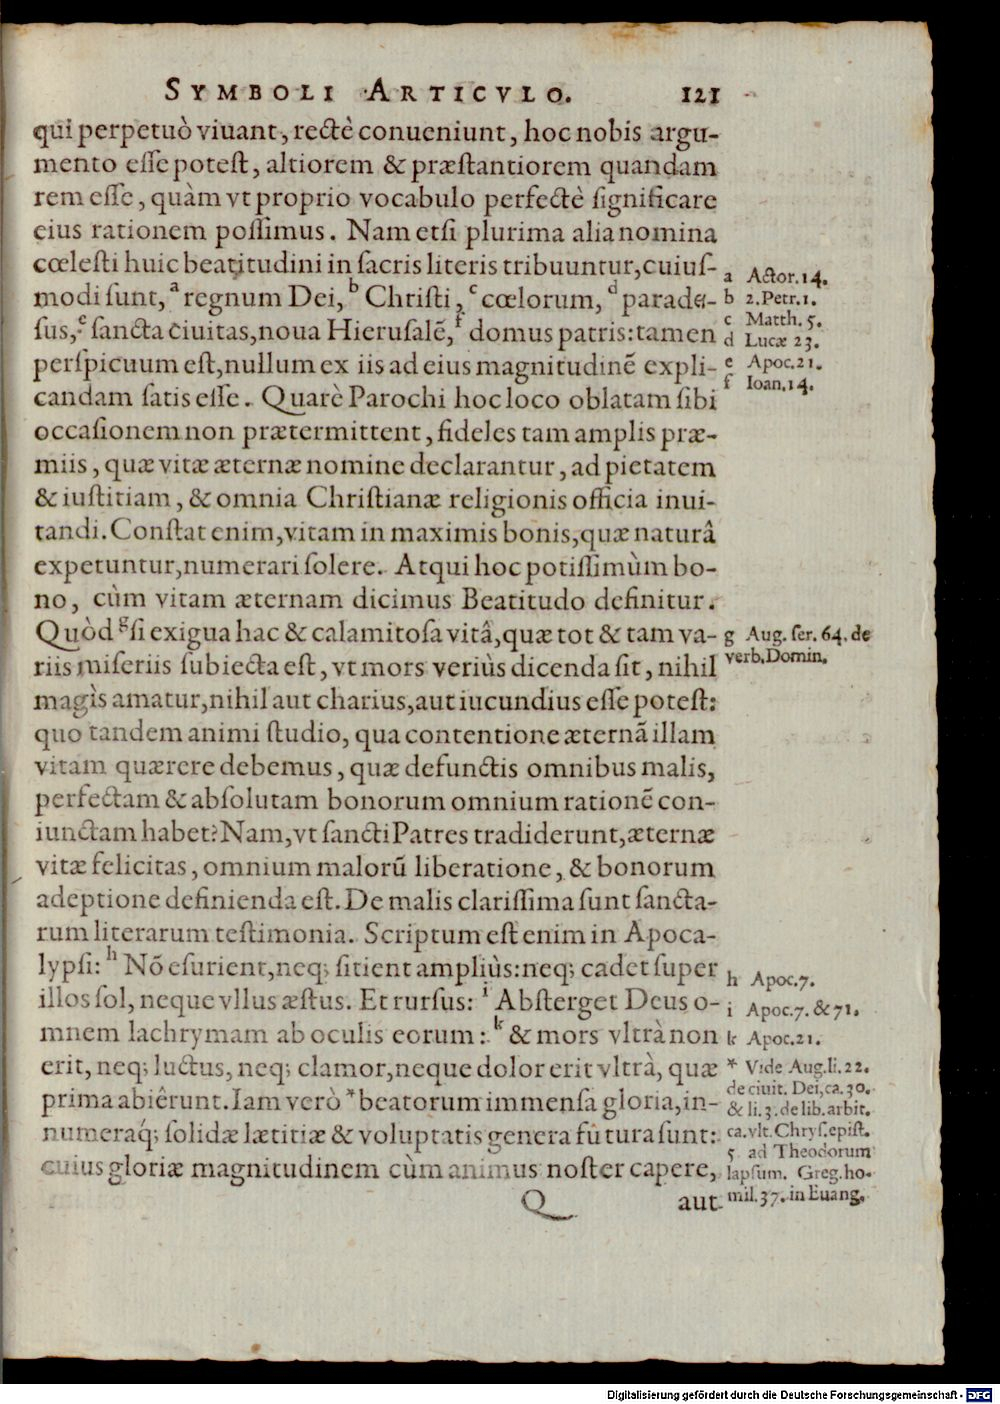 SYMBOLI ARTICVLO. 121
qui perpetuò viuant, rectè conueniunt, hoc nobis argu-
mento eſſe poteſt, altiorem & præſtantiorem quandam
rem eſſe, quàm vt proprio vocabulo perfectè ſignificare
eius rationem poſſimus. Nam etſi plurima alia nomina
cœleſti huic beatitudini in ſacris literis tribuuntur, cuiuſ-
modi ſunt, ᵃ regnum Dei, ᵇ Chriſti, ᶜ cœlorum, ᵈ paradi-
ſus, ᵉ ſancta ciuitas, noua Hieruſalē, ᶠ domus patris: tamen
perſpicuum eſt, nullum ex iis ad eius magnitudinē expli-
candam ſatis eſſe. Quarè Parochi hoc loco oblatam ſibi
occaſionem non prætermittent, fideles tam amplis præ-
miis, quæ vitæ æternæ nomine declarantur, ad pietatem
& iuſtitiam, & omnia Chriſtianæ religionis officia inui-
tandi. Conſtat enim, vitam in maximis bonis, quæ naturâ
expetuntur, numerari ſolere. Atqui hoc potiſſimùm bo-
no, cùm vitam æternam dicimus Beatitudo definitur.
Quòd ᵍ ſi exigua hac & calamitoſa vitâ, quæ tot & tam va-
riis miſeriis ſubiecta eſt, vt mors veriùs dicenda ſit, nihil
magìs amatur, nihil aut charius, aut iucundius eſſe poteſt:
quo tandem animi ſtudio, qua contentione æternā illam
vitam quærere debemus, quæ defunctis omnibus malis,
perfectam & abſolutam bonorum omnium rationē con-
iunctam habet? Nam, vt ſancti Patres tradiderunt, æternæ
vitæ felicitas, omnium malorū liberatione, & bonorum
adeptione definienda eſt. De malis clariſſima ſunt ſancta-
rum literarum teſtimonia. Scriptum eſt enim in Apoca-
lypſi: ʰ Nō eſurient, neq; ſitient ampliùs: neq; cadet ſuper
illos ſol, neque vllus æſtus. Et rurſus: ⁱ Abſterget Deus o-
mnem lachrymam ab oculis eorum: ᵏ & mors vltrà non
erit, neq; luctus, neq; clamor, neque dolor erit vltrà, quæ
prima abiêrunt. Iam verò * beatorum immenſa gloria, in-
numeraq́; ſolidæ lætitiæ & voluptatis genera futura ſunt:
cuius gloriæ magnitudinem cùm animus noſter capere,
Q aut
a Actor. 14.
b 2. Petr. 1.
c Matth. 5.
d Lucæ 23.
e Apoc. 21.
f Ioan. 14.
g Aug. ſer. 64. de
verb. Domin.
h Apoc. 7.
i Apoc. 7. & 71.
k Apoc. 21.
* Vide Aug. li. 22.
de ciuit. Dei, ca. 30.
& li. 3. de lib. arbit.
ca. vlt. Chryſ. epiſt.
5 ad Theodorum
lapſum. Greg. ho-
mil. 37. in Euang.
Digitalisierung gefördert durch die Deutsche Forschungsgemeinschaft - DFG